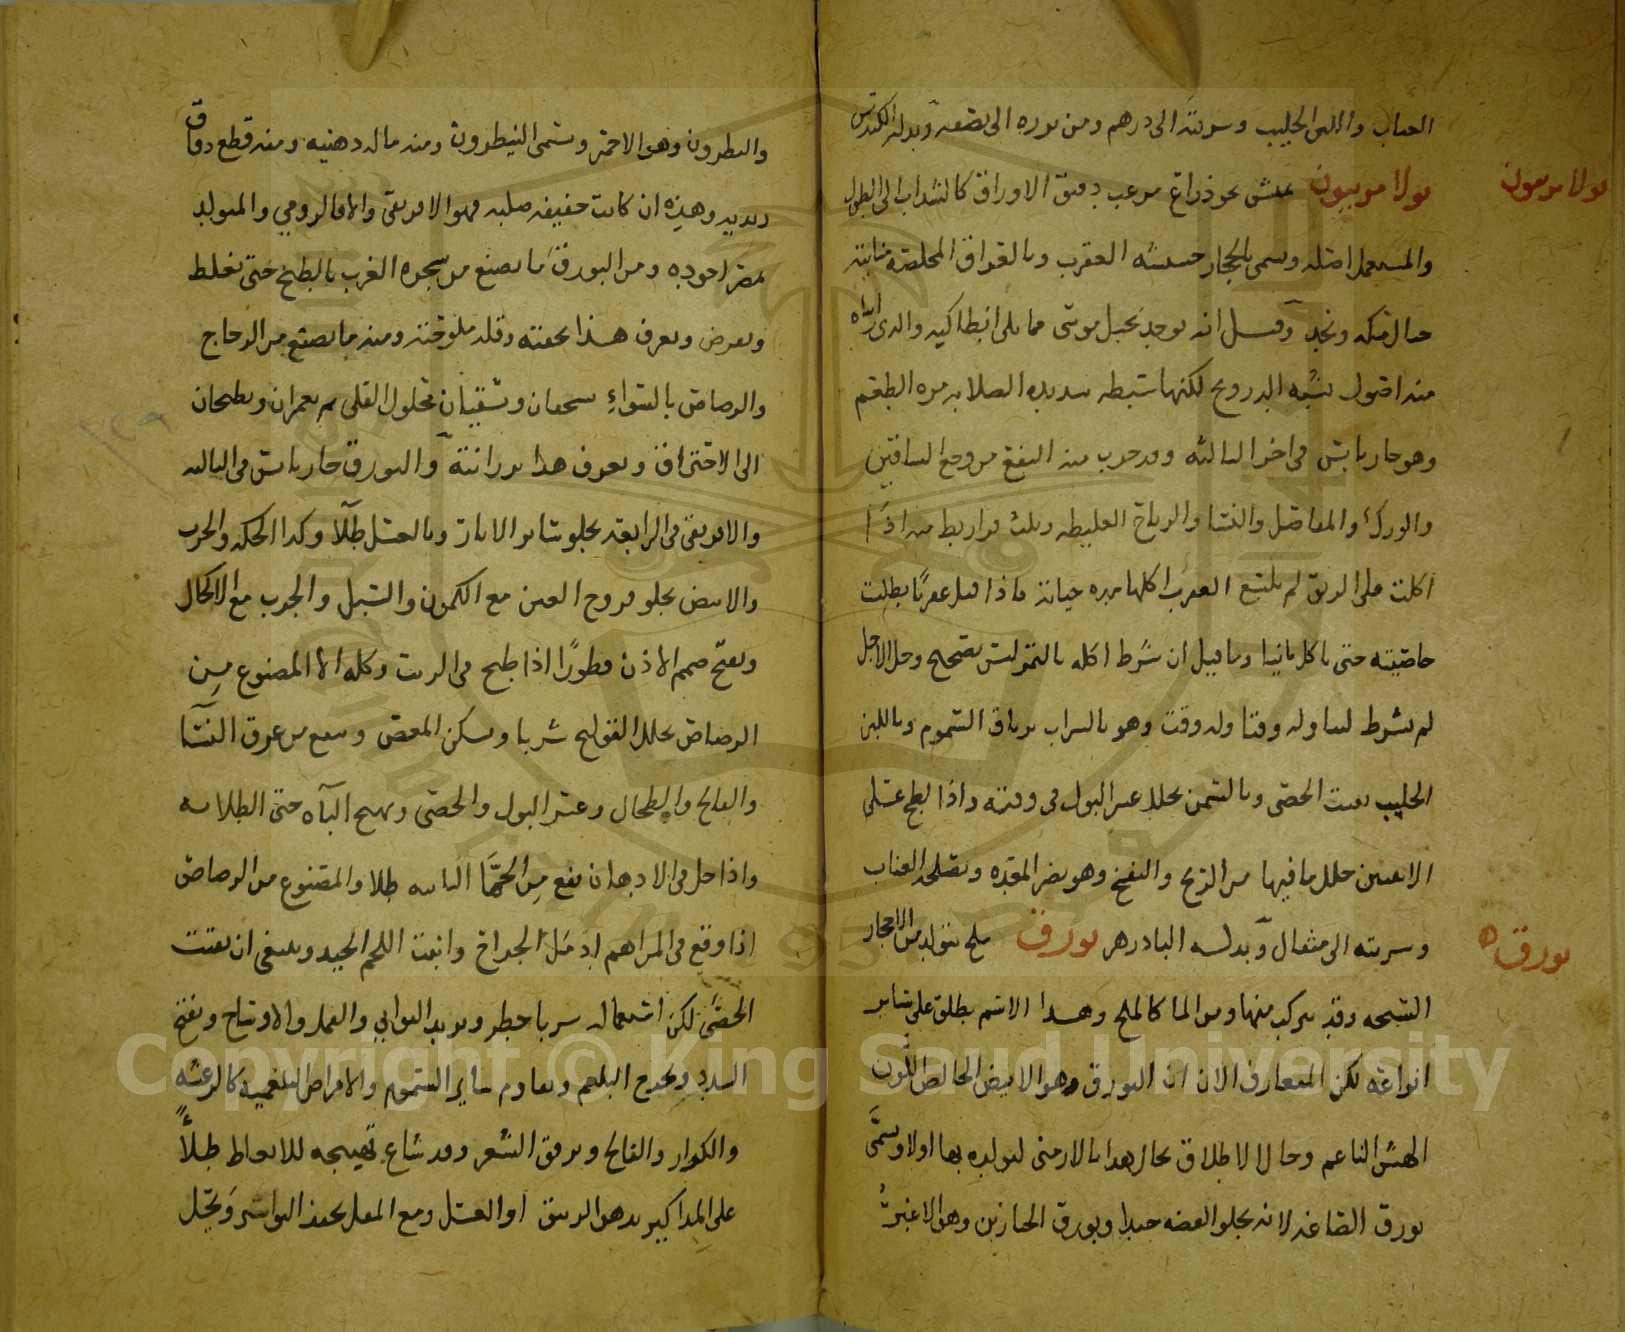 العناب واللبن الحليب وشربته الى درهم ومن بزره الى نصفه وبدله الكندس
بولامونيون
بولامونيون عشبى نحو ذراع مزغب دقيق الاوراق كالسداب الى الطول
والمستعمل اصله ويسمى بالحجاز حشيشة العقرب وبالعراق المخلصة منابته
جبال مكة ونجد وقيل انه يوجد بجبل موسى مما يلى انطاكيه والذى رايناه
منه اصول تشبه الدرونج لكنها شديده الصلابه مره الطعم
وهو حار يابس فى اخر الثالثه وقد جرب منه النفع من وجع الساقين
والورك والمفاصل والنسا والرياح الغليظه وثلث قواريط منه اذا
اكلت على الريق لم يلسع العقرب اكلها مده حياته فاذا قتل عقربًا بطلت
خاصيته حتى ياكل ثانيا وما قيل ان شرط اكله بالتمر ليس بصحيح وحل الاجل
لم يشرط لتناوله وقتا دون وقت وهو بالشراب ترياق السموم وباللبن
الحليب يفتت الحصى وبالسمن يحلل عسر البول فى وقته واذا لطخ على
الانثيين حلل ما فيها من الريح والنفخ وهو يضر المعده ويصلحه العناب
وشربته الى مثقال وبدله البادزهر بورق ملح يتولد من الاحجار
بورق
السبخه وقد يتركب منها ومن الما كالملح وهذا الاسم يطلق على سائر
انواعه لكن المتعارف الان ان البورق هو الابيض الخالص اللون
الهش الناعم وحال الاطلاق يخال هذا بالارمنى لتولده بها اولا ويسمى
بورق الصاغه لانه يجلو الفضه جيدا وبورق الخبازين وهو الاغبر
والنطرون وهو الاحمر ويسمى النيطرون ومنه ما له دهنيه ومنه قطع دقاق
زبديه وهذه ان كانت خفيفه صلبه فهو الافريقى والا فالرومي والمتولد
بمصر اجوده ومن البورق ما يصنع من شجره الغرب بالطبخ حتى تغلظ
ويقرض ويعرف هذا بخفته وقله ملوحته ومنه ما يصنع من الزجاج
والرصاص بالسواء يسحقان ويسقيان محلول القلى ثم يعمران ويطبخان
الى الاحتراق ويعرف هذا برزانته والبورق حار يابس فى الثالثه
والافريقى فى الرابعه يجلو سائر الاثار وبالعسل طلآ وكذا الحكه والجرب
والابيض يجلو قروح العين مع الكمون والسبل والجرب مع الاكحال
ويفتح صمم الاذن قطورًا اذا طبخ فى الزيت وكله الا المصنوع مِن
الرصاص يحلل القولنج شربا ويسكن المغص وينفع من عرق النسا
والفالج والطحال وعسر البول والحصى ويهيج الباه حتى الطلا به
واذا حل فى الادهان نفع مِن الحمّا النابيه طلا والمصنوع من الرصاص
اذا وقع فى المراهم ادمل الجراح وانبت اللحم الجيد وينبغى ان يفتت
الحصى لكن استعماله شربا خطر ويزيد البواقى والقمل والاوساخ ويفتح
السدد ويخرج البلغم ويقاوم سائر السموم والامراض البلغميه كالرعشه
والكزاز والفالج ويرقق الشعر وقد شاع تهيجه للانعاظ طلاءً
على المذاكير بدهن الزيبق او العسل ومع المقل يجفف البواسر ويحيل